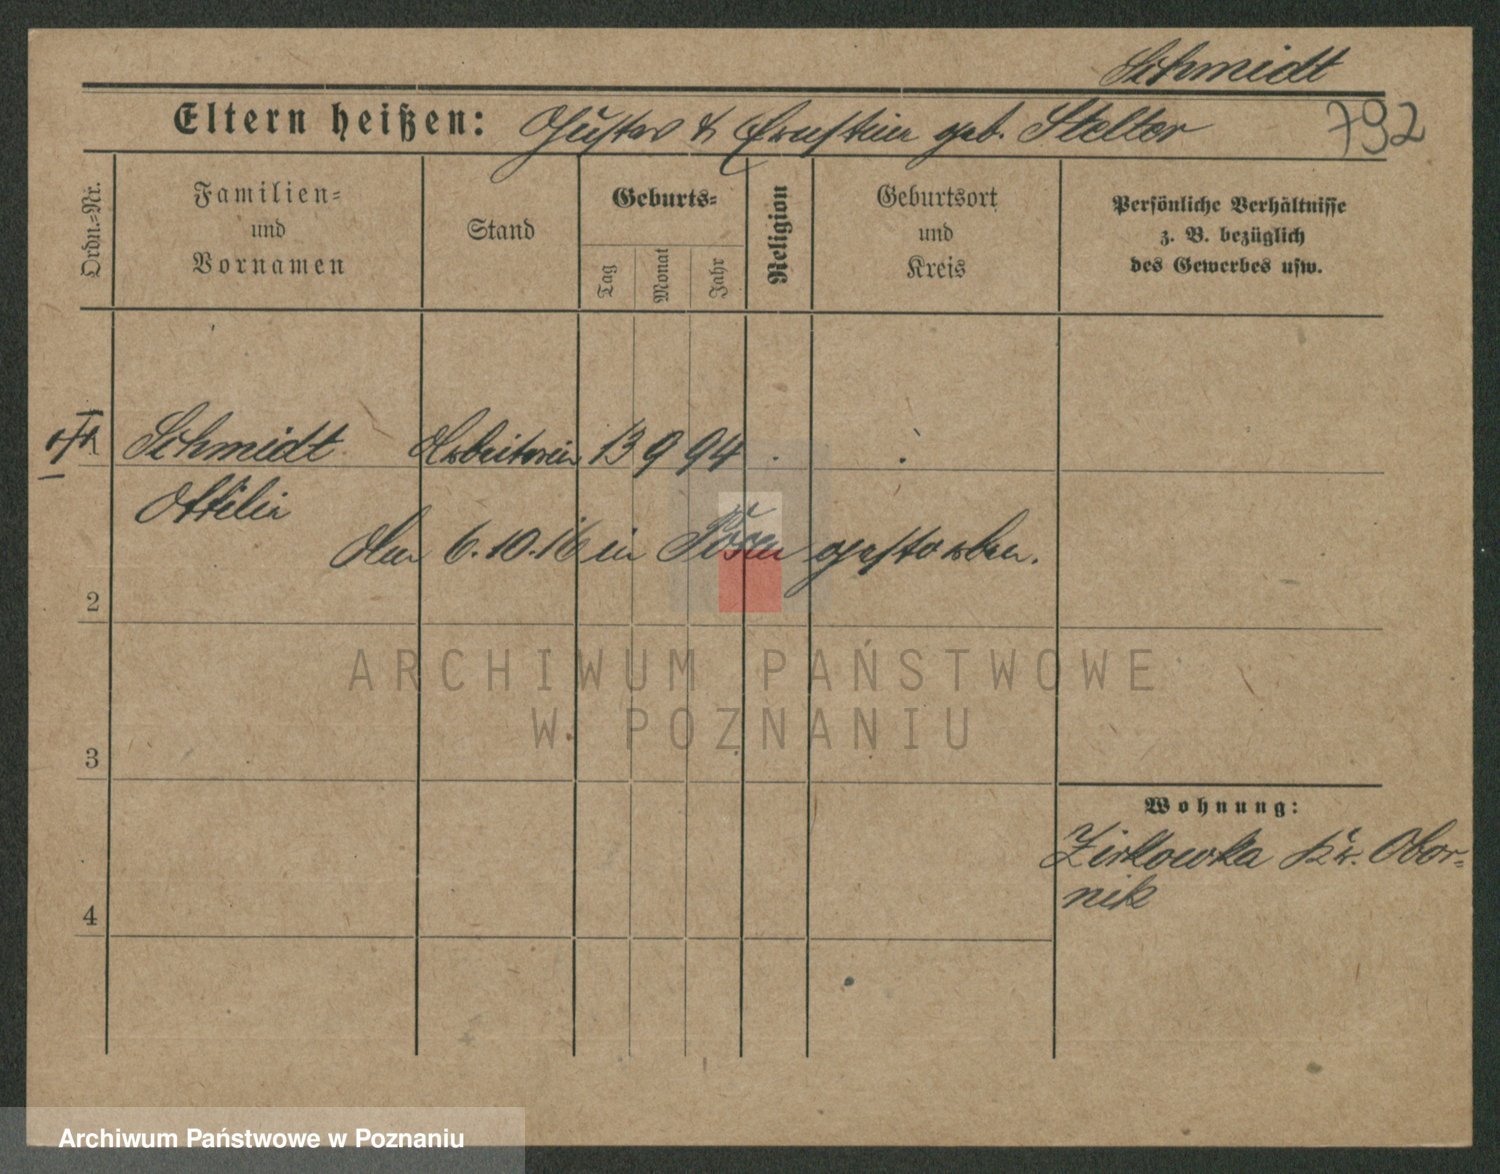 Schmidt
Eltern heißen: Gustav & Ernstine geb. Stelter
792
Ordn.-Nr.
Familien-
und
Vornamen
Stand
Geburts-
Tag
Monat
Jahr
Religion
Geburtsort
und
Kreis
Persönliche Verhältnisse
z. B. bezüglich
des Gewerbes usw.
Schmidt Arbeiterin 13 9 94 . .
Ottilie
Den 6.10.16 in Posen gestorben.
2
ARCHIWUM PAŃSTWOWE
W POZNANIU
3
Wohnung:
Zirkowka Kr. Obor-
nik
4
Archiwum Państwowe w Poznaniu